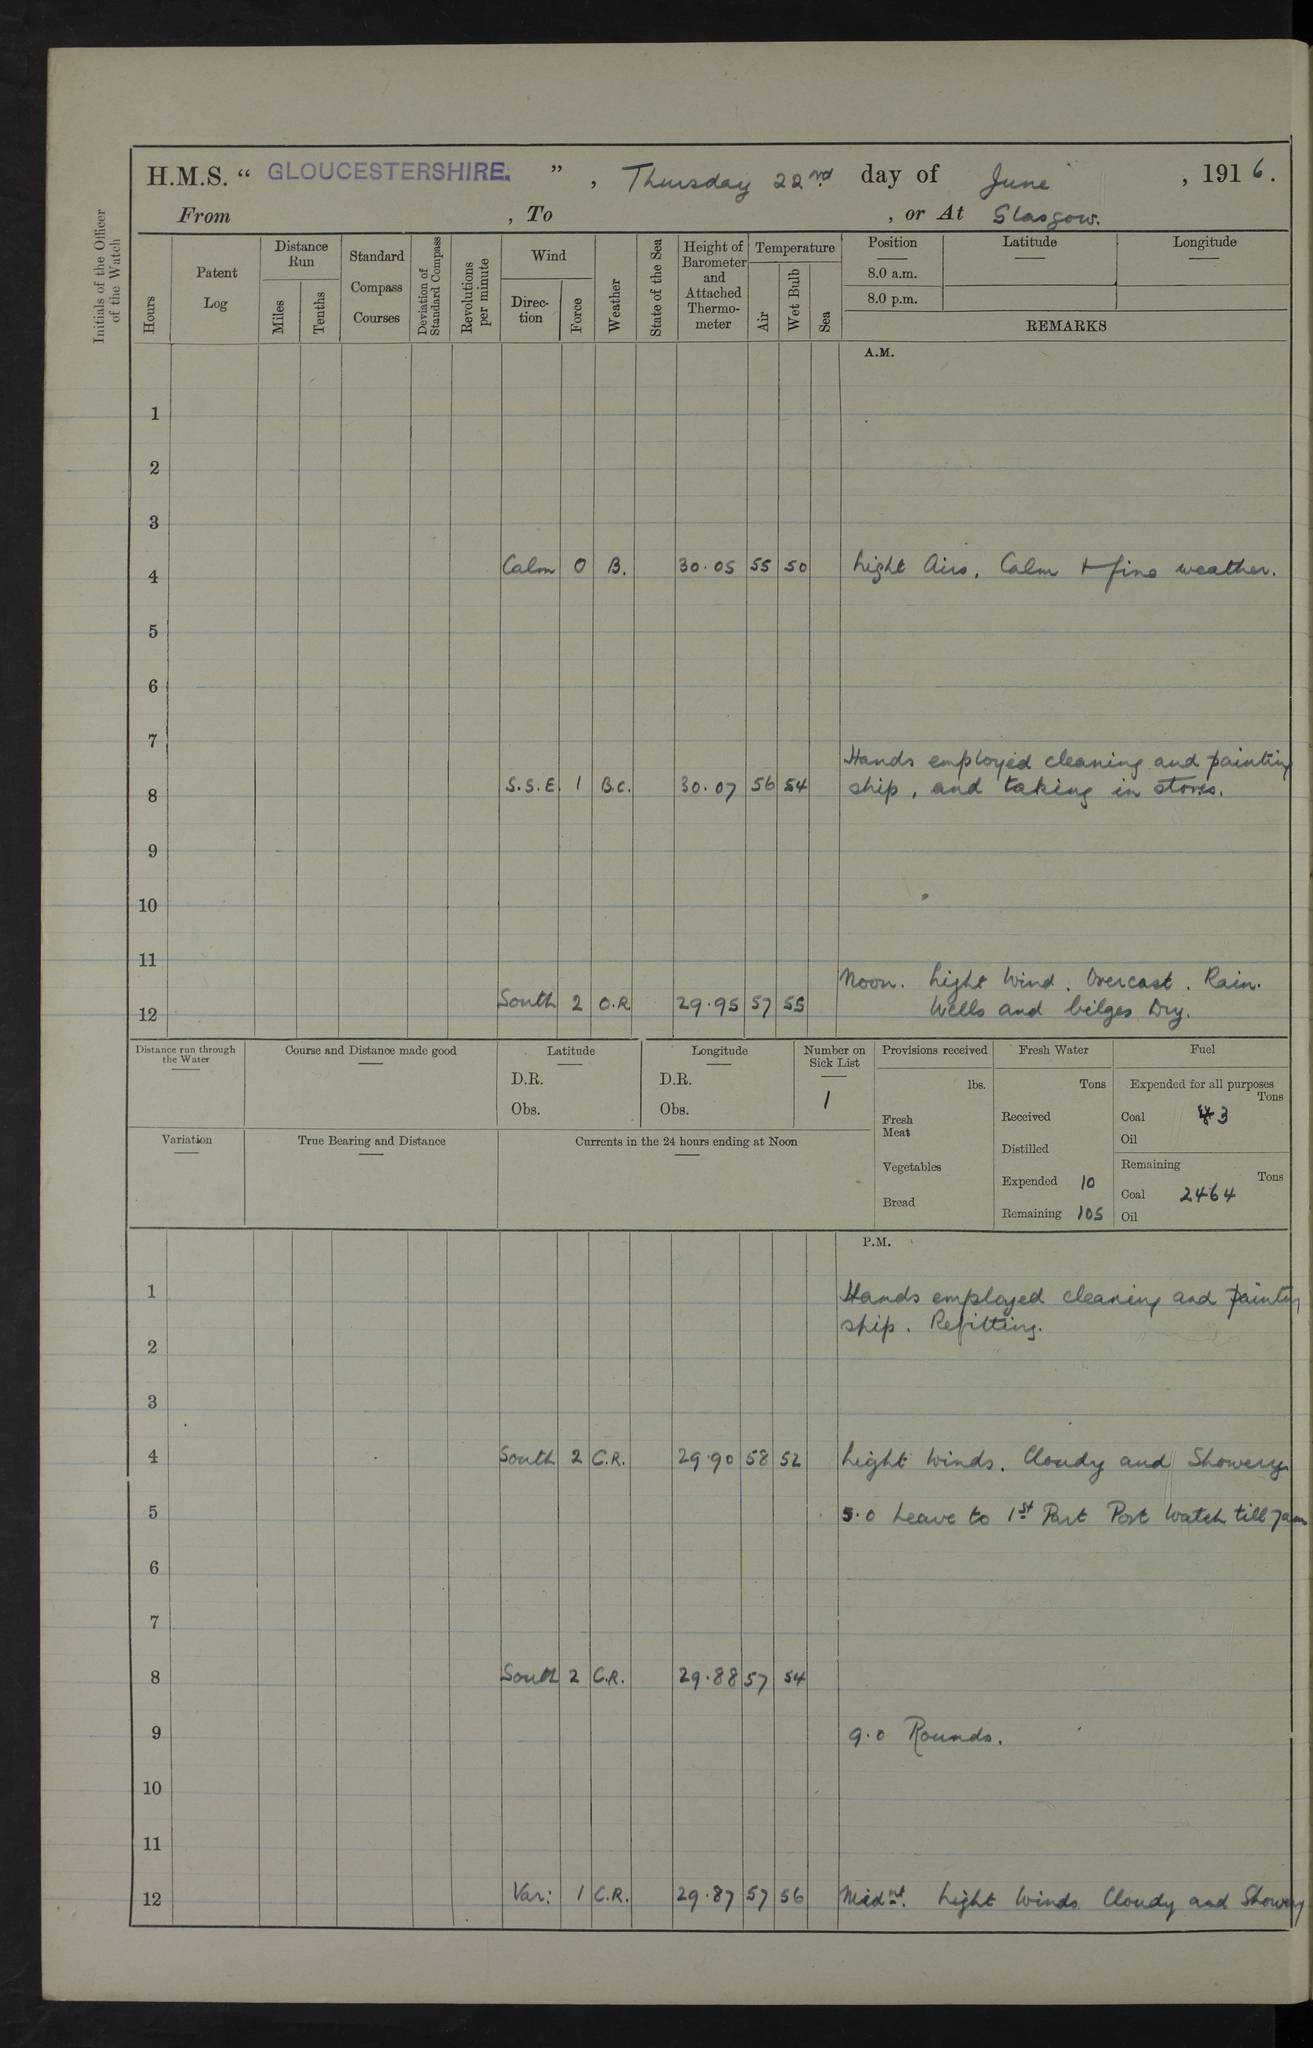 H.M.S. “ GLOUCESTERSHIRE. ” , Thursday 22nd day of June , 1916.
From , To , or At Glasgow.
Initials of the Officer of the Watch
Hours
Patent Log
Distance Run
Miles
Tenths
Standard Compass Courses
Deviation of Standard Compass
Revolutions per minute
Wind
Direc-tion
Force
Weather
State of the Sea
Height of Barometer and Attached Thermo-meter
Temperature
Air
Wet Bulb
Sea
Position Latitude Longitude
8.0 a.m.
8.0 p.m.
REMARKS
A.M.
1
2
3
4 Calm 0 B. 30.05 55 50 Light Airs, Calm + fine weather.
5
6
7
Hands employed cleaning and painting
8 S.S.E. 1 B.C. 30.07 56 54 ship, and taking in stores.
9
10
11
Noon. Light Wind. Overcast. Rain.
12 South 2 O.R. 29.95 57 55 Wells and bilges Dry.
Distance run through the Water
Course and Distance made good
Latitude
D.R.
Obs.
Longitude
D.R.
Obs.
Number on Sick List
1
Provisions received
lbs.
Fresh Meat
Vegetables
Bread
Fresh Water
Tons
Received
Distilled
Expended 10
Remaining 105
Fuel
Expended for all purposes
Tons
Coal 43
Oil
Remaining
Tons
Coal 2464
Oil
Variation
True Bearing and Distance
Currents in the 24 hours ending at Noon
P.M.
1 Hands employed cleaning and painting
ship. Refitting.
2
3
4 South 2 C.R. 29.90 58 52 Light Winds. Cloudy and Showery
5 5.0 Leave to 1st Part Port Watch till 7am
6
7
8 South 2 C.R. 29.88 57 54
9 9.0 Rounds.
10
11
12 Var: 1 C.R. 29.87 57 56 Midnt. Light Winds Cloudy and Showery